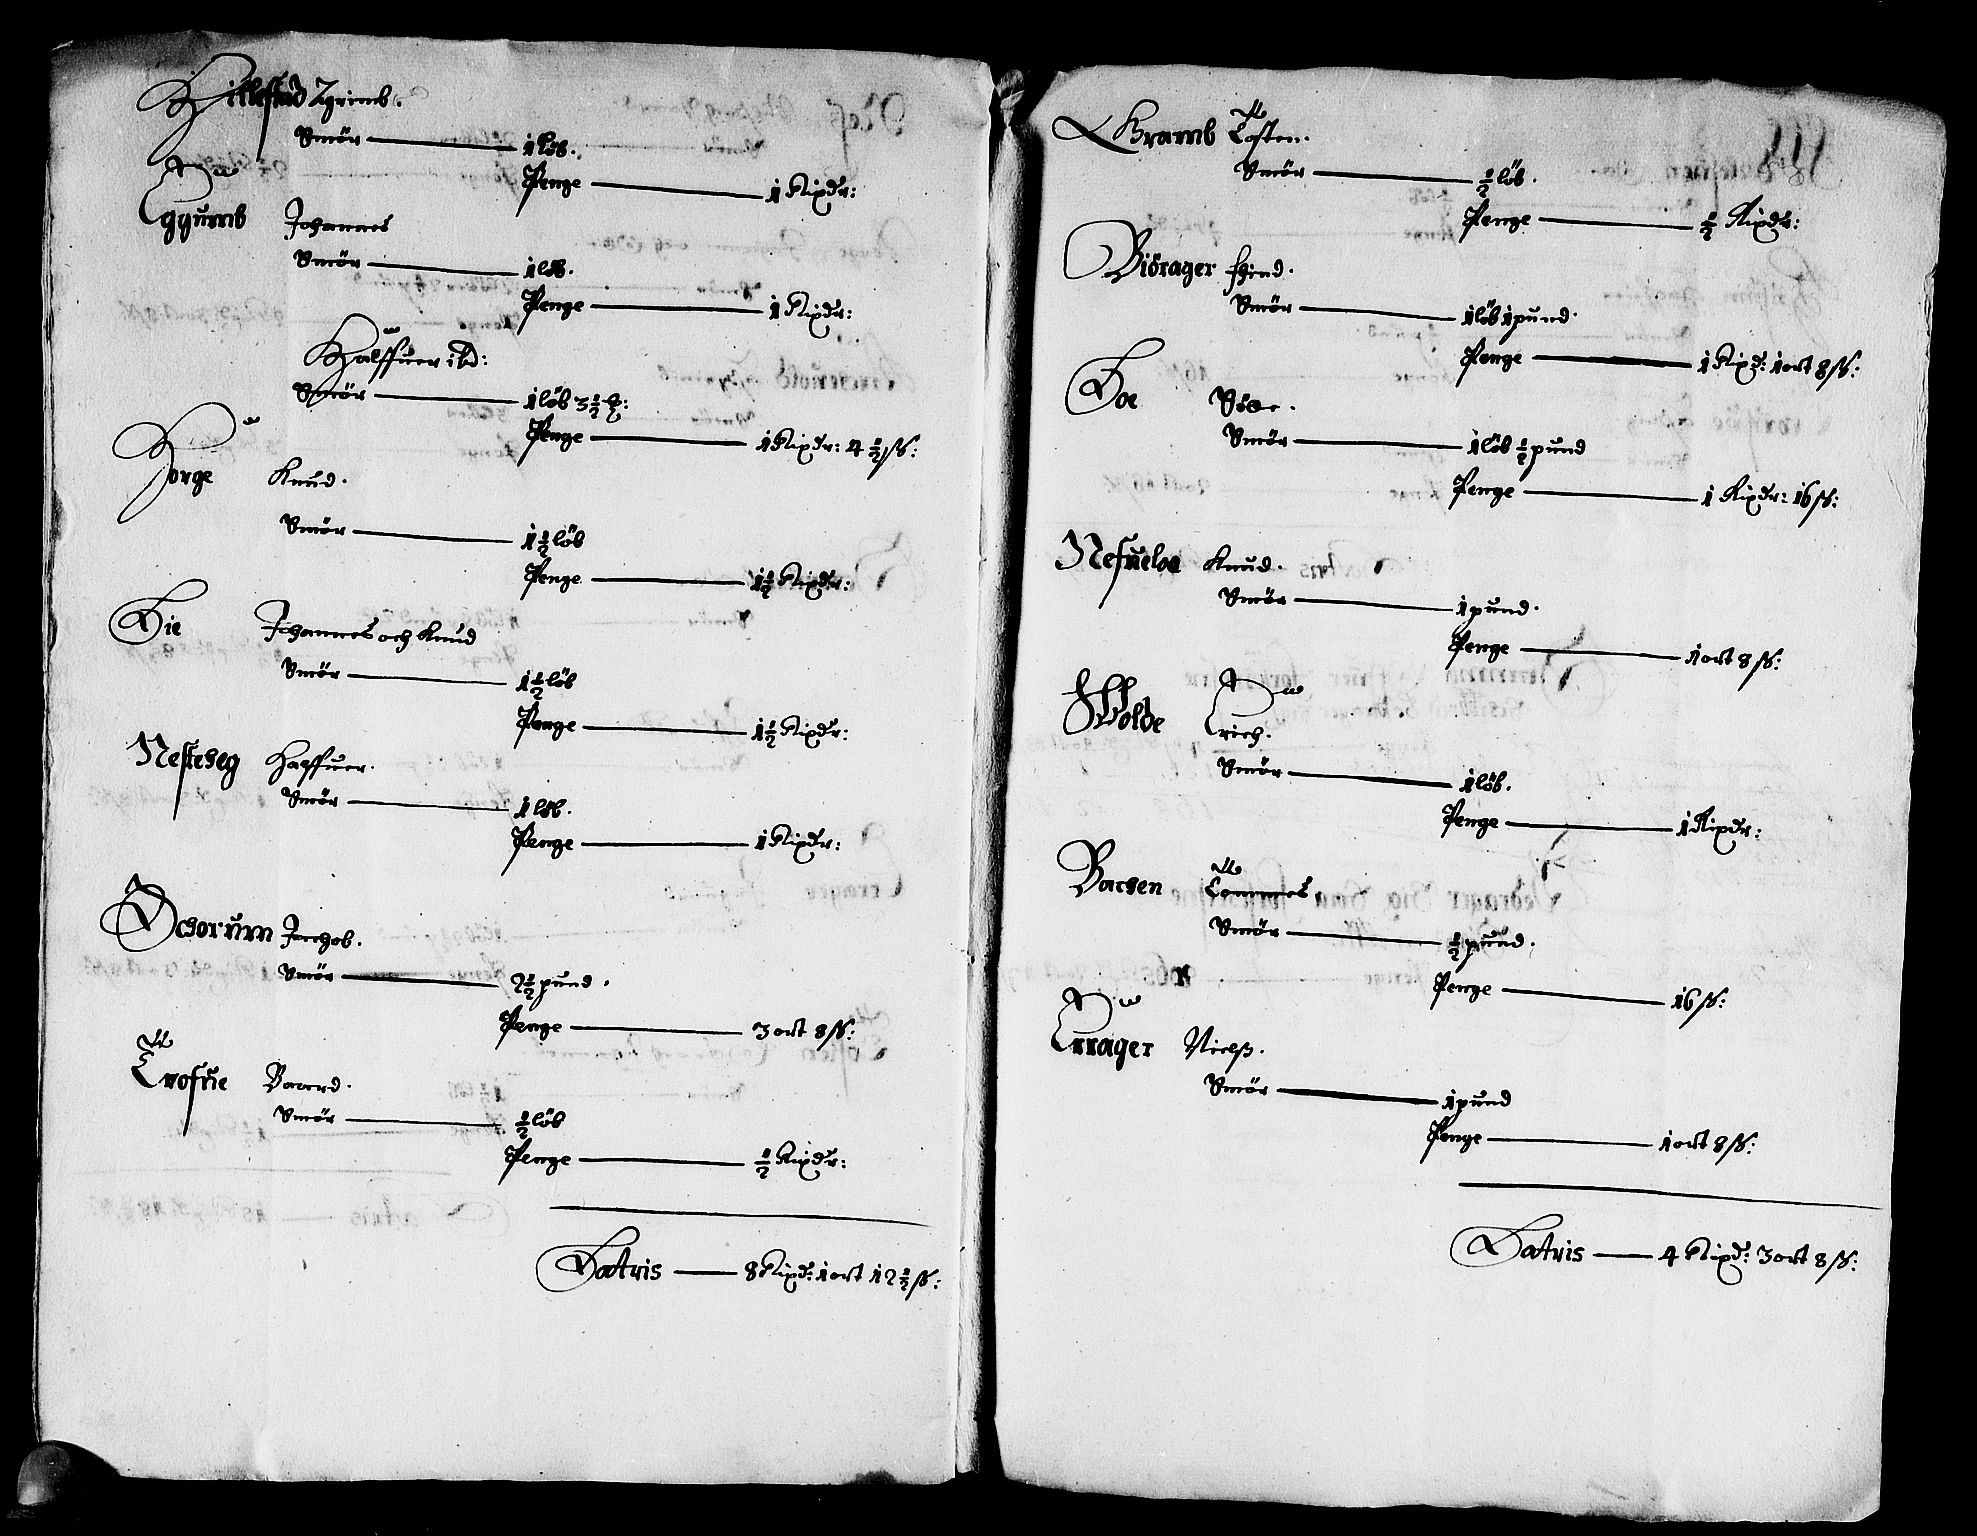 Hillestad Zgrimb.
Smör — 1 löb.
Penge — 1 Rixdr:
Eggumb Johannes
Smör — 1 löb.
Penge — 1 Rixdr:
Halffuer ibd:
Smör — 1 löb 3½ :
Penge — 1 Rixdr: 4½ ß:
Horge Knud.
Smör — 1½ löb
Penge — 1½ Rixdr:
Lie Johannes och Knud
Smör — 1½ löb
Penge — 1½ Rixdr:
Nesteheg Halffuer.
Smör — 1 löb.
Penge — 1 Rixdr:
Ochorum Jachob.
Smör — 2½ pund.
Penge — 3 ort 8 ß:
Trofue Baard.
Smör — ½ löb
Penge — ½ Rixdr:
Latris — 8 Rixd: 1 ort 12½ ß:
Hramb Tosten.
Smör — ½ löb.
Penge — ½ Rixdr:
Biörager
Smör — 1 löb 1 pund.
Penge — 1 Rixd: 1 ort 8 ß:
Boe
Smör — 1 löb ½ pund
Penge — 1 Rixdr: 16 ß:
Nesueloe Knud.
Smör — 1 pund.
Penge — 1 ort 8 ß:
Wolde Erich.
Smör — 1 löb.
Penge — 1 Rixdr:
Bachen Tommes.
Smör — ½ pund.
Penge — 16 ß:
Errager Nielß.
Smör — 1 pund
Penge — 1 ort 8 ß:
Latris — 4 Rixd: 3 ort 8 ß: